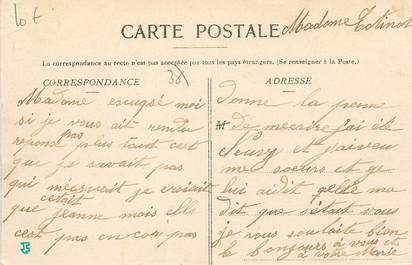 lot
CARTE POSTALE
Madame Colinot
La correspondance au recto n'est pas acceptée par tous les pays étrangers. (Se renseigner à la Poste.)
38
CORRESPONDANCE
Madame exeugsé moi
si je vous ait rendu
pas
reponse plus taut cest
que je savait pas
qui mécrivait je croiait
cetait
que jeanne mais elle
cest pas en cor pas
ADRESSE
donne la penne
De mecrire j'ai été
et j'ai veu
mes soeurs et je
lui aidit quelle ma
dit que s'étaut vous
je vous souhaite bien
le bongours à vous et
à votre